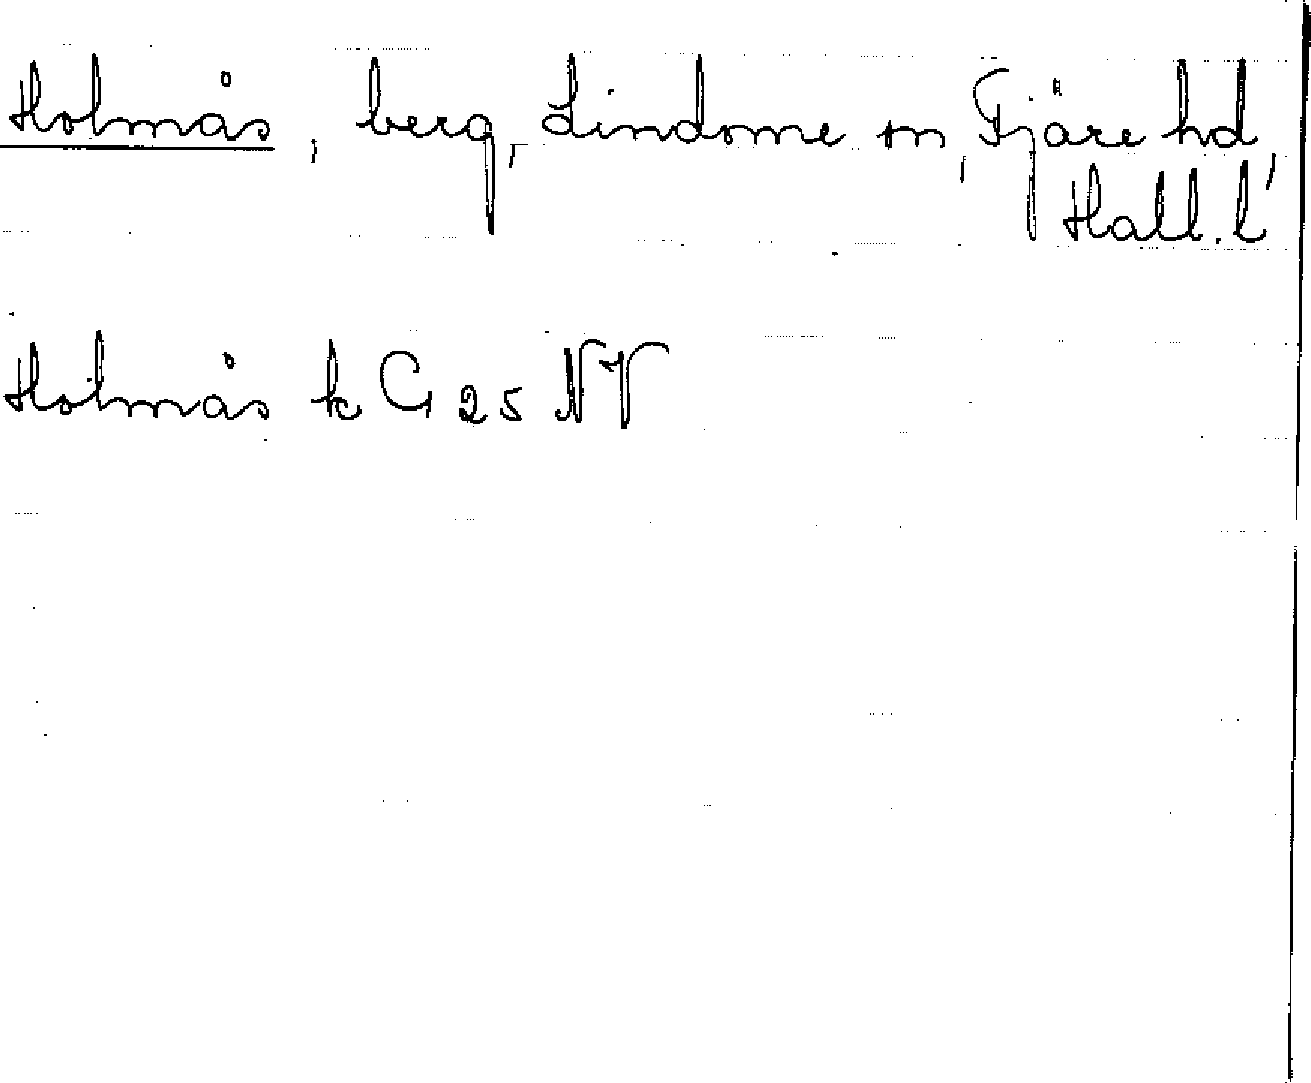 Holmås, berg, Lindome sn, Fjäre hd,
Hall. l
Holmås k G 25 NV